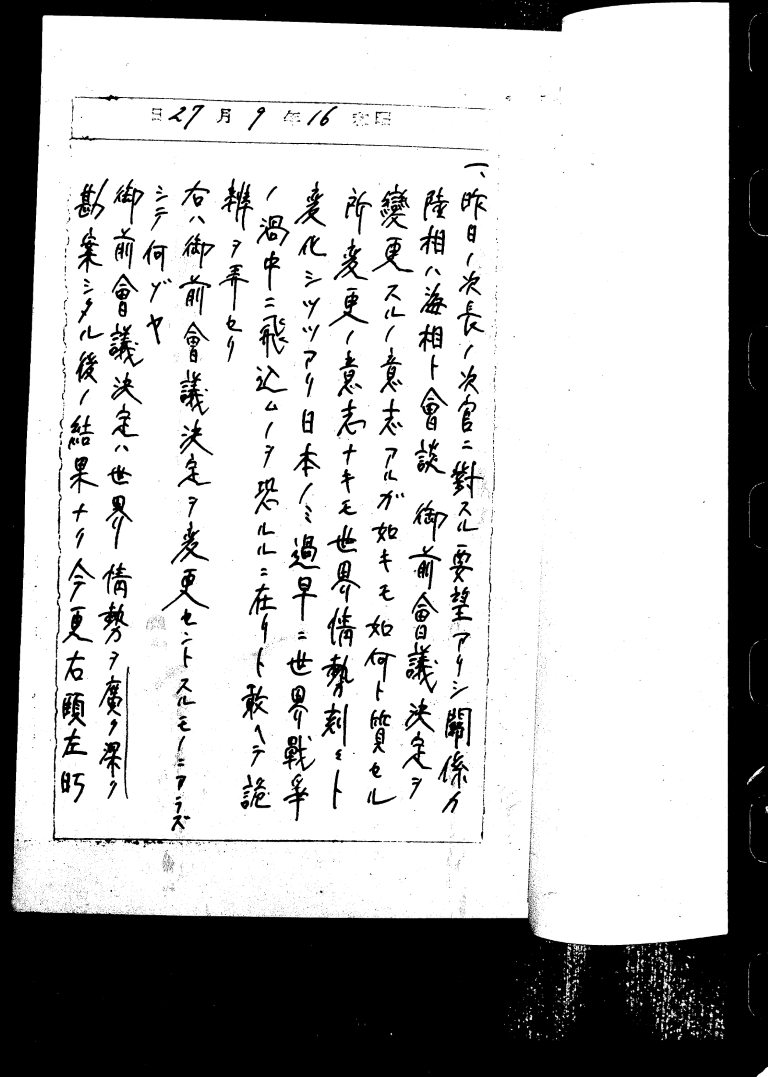 昭和16年9月27日
一、昨日ノ次長ノ次官ニ對スル要望アリシ關係カ
陸相ハ海相ト會談 御前會議決定ヲ
變更スルノ意志アルガ如キモ如何ト質セル
所変更ノ意志ナキモ世界情勢刻々ト
変化シツツアリ日本ノミ過早ニ世界戰爭
ノ渦中ニ飛込ムノヲ恐ルルニ在リト敢ヘテ詭
辨ヲ弄セリ
右ハ御前會議決定ヲ変更セントスルモノニアラズ
シテ何ゾヤ
御前會議決定ハ世界情勢ヲ廣ク深ク
勘案シタル後ノ結果ナリ今更右顧左眄